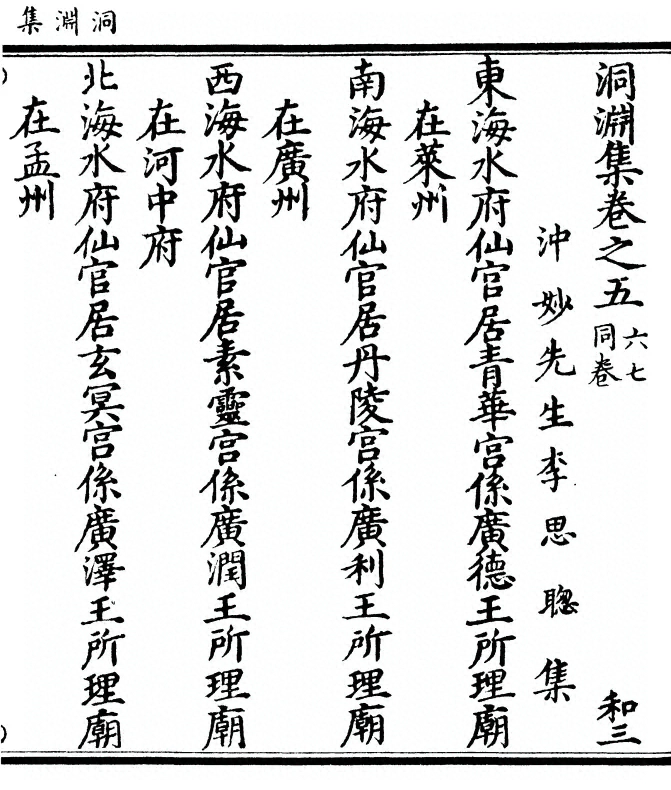 洞淵集
洞淵集卷之五 六七同卷 和三
沖妙先生李思聰集
東海水府仙官居青華宮係廣德王所理廟
在萊州
南海水府仙官居丹陵宮係廣利王所理廟
在廣州
西海水府仙官居素靈宮係廣潤王所理廟
在河中府
北海水府仙官居玄冥宮係廣澤王所理廟
在孟州